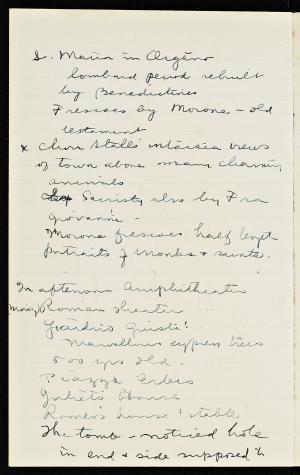 S. Maria in Orgâno
lombard period rebuilt
by Benedictines
Frescoes by Morone - old
testament
x Choir Stalls intarsia views
of town above many charming
animals
Sacristy also by Fra
Giovanni -
Morone frescoes half length
portraits of monks & saints.
In afternoon Amphitheater
Roman theater
Giardris Giusti!
Marvellous cypress trees
500 yrs old.
Piazza Erbes
Juliet's House
Romeo's house 'stable'
The tomb - noticed hole
in end & side supposed to